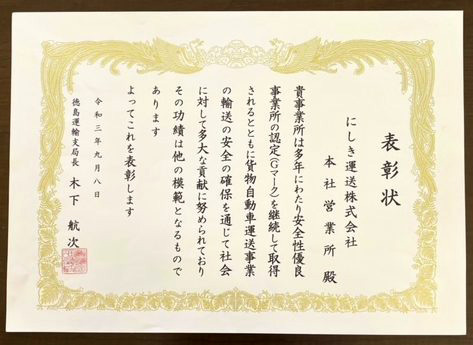 表彰状
にしき運送株式会社
本社営業所 殿
貴事業所は多年にわたり安全性優良
事業所の認定(Gマーク)を継続して取得
されるとともに貨物自動車運送事業
の輸送の安全の確保を通じて社会
に対して多大な貢献に努められており
その功績は他の模範となるもので
あります
よってこれを表彰します
令和三年九月八日
徳島運輸支局長 木下 航次